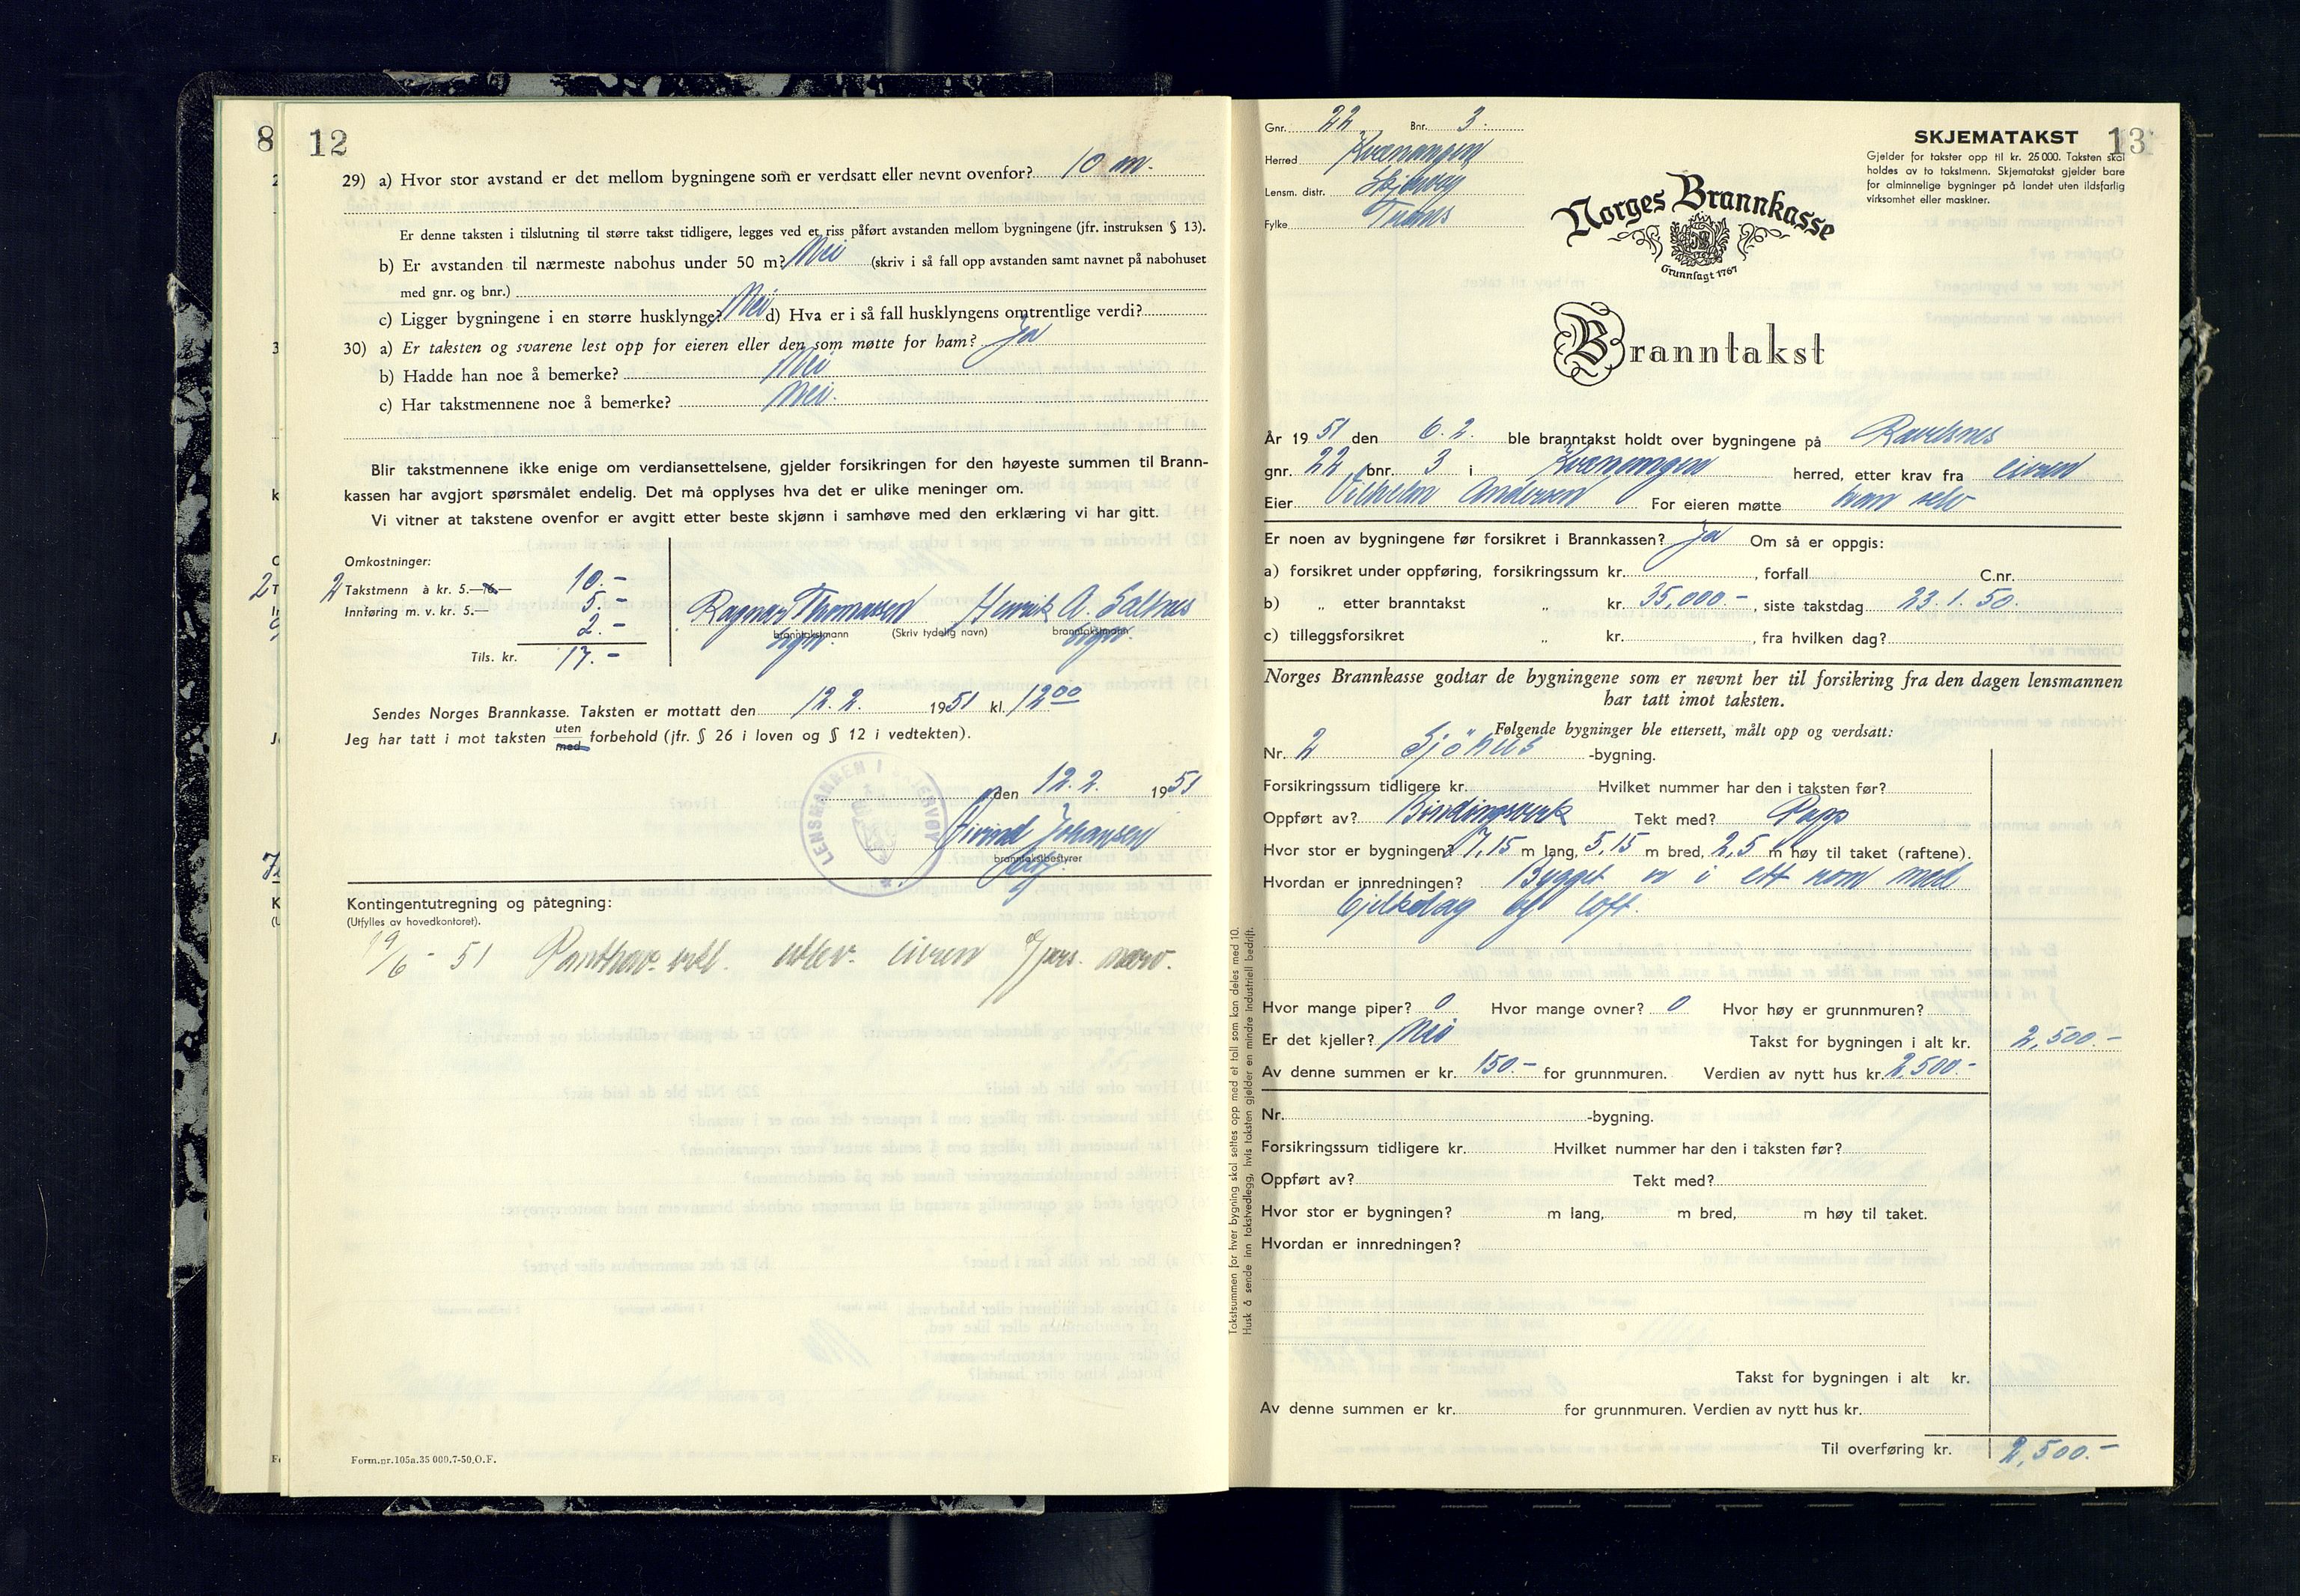 8 12
29) a) Hvor stor avstand er det mellom bygningene som er verdsatt eller nevnt ovenfor? 10 m.
Er denne taksten i tilslutning til større takst tidligere, legges ved et riss påført avstanden mellom bygningene (jfr. instruksen § 13).
b) Er avstanden til nærmeste nabohus under 50 m? Nei (skriv i så fall opp avstanden samt navnet på nabohuset
med gnr. og bnr.)
c) Ligger bygningene i en større husklynge? Nei d) Hva er i så fall husklyngens omtrentlige verdi?
30) a) Er taksten og svarene lest opp for eieren eller den som møtte for ham? Ja
b) Hadde han noe å bemerke? Nei
c) Har takstmennene noe å bemerke? Nei.
Blir takstmennene ikke enige om verdiansettelsene, gjelder forsikringen for den høyeste summen til Brann-
kassen har avgjort spørsmålet endelig. Det må opplyses hva det er ulike meninger om.
Vi vitner at takstene ovenfor er avgitt etter beste skjønn i samhøve med den erklæring vi har gitt.
Omkostninger:
2 Takstmenn à kr. 5.— 10.-
Innføring m. v. kr. 5.— 5.-
2.-
Tils. kr. 17.-
Ragnar Thomassen Henrik A. Saltnes
branntakstmann (Skriv tydelig navn) branntakstmann
sign. sign.
Sendes Norges Brannkasse. Taksten er mottatt den 12.2. 1951 kl. 12 00
Jeg har tatt i mot taksten uten med forbehold (jfr. § 26 i loven og § 12 i vedtekten).
LENSMANNEN I SKJERVØY
den 12.2. 1951
Eivind Johansen
branntakstbestyrer
Kontingentutregning og påtegning:
(Utfylles av hovedkontoret).
19/6 - 51 Panthav. erkl. utlev. eieren pers.
Form.nr.105a.35 000.7-50.O.F.
Gnr. 22 Bnr. 3.
Herred Kvænangen
Lensm. distr. Skjervøy
Fylke Troms
SKJEMATAKST 13
Gjelder for takster opp til kr. 25 000. Taksten skal
holdes av to takstmenn. Skjematakst gjelder bare
for alminnelige bygninger på landet uten ildsfarlig
virksomhet eller maskiner.
Norges Brannkasse
Grunnlagt 1767
Branntakst
År 1951 den 6.2. ble branntakst holdt over bygningene på Ravelsnes
gnr. 22, bnr. 3 i Kvænangen herred, etter krav fra eieren
Eier Vilhelm Andersen For eieren møtte han selv
Er noen av bygningene før forsikret i Brannkassen? Ja Om så er oppgis:
a) forsikret under oppføring, forsikringssum kr. , forfall C.nr.
b) „ etter branntakst „ kr. 35,000.- , siste takstdag 23.1.50.
c) tilleggsforsikret „ kr. , fra hvilken dag?
Norges Brannkasse godtar de bygningene som er nevnt her til forsikring fra den dagen lensmannen
har tatt imot taksten.
Følgende bygninger ble ettersett, målt opp og verdsatt:
Nr. 2 Sjöhus -bygning.
Forsikringssum tidligere kr. Hvilket nummer har den i taksten før?
Oppført av? Bindingsverk Tekt med? Papp
Hvor stor er bygningen? 7,15 m lang, 5,15 m bred, 2,5 m høy til taket (raftene).
Hvordan er innredningen? Bygget er i ett rom med
bjelkelag og loft.
Hvor mange piper? 0 Hvor mange ovner? 0 Hvor høy er grunnmuren?
Er det kjeller? Nei Takst for bygningen i alt kr. 2,500.-
Av denne summen er kr. 150.- for grunnmuren. Verdien av nytt hus kr. 2,500.-
Nr. -bygning.
Forsikringssum tidligere kr. Hvilket nummer har den i taksten før?
Oppført av? Tekt med?
Hvor stor er bygningen? m lang, m bred, m høy til taket.
Hvordan er innredningen?
Takst for bygningen i alt kr.
Av denne summen er kr. for grunnmuren. Verdien av nytt hus kr.
Til overføring kr. 2,500.-
Takstsummen for hver bygning skal settes opp med et tall som kan deles med 10.
Husk å sende inn takstvedlegg, hvis taksten gjelder en mindre industriell bedrift.